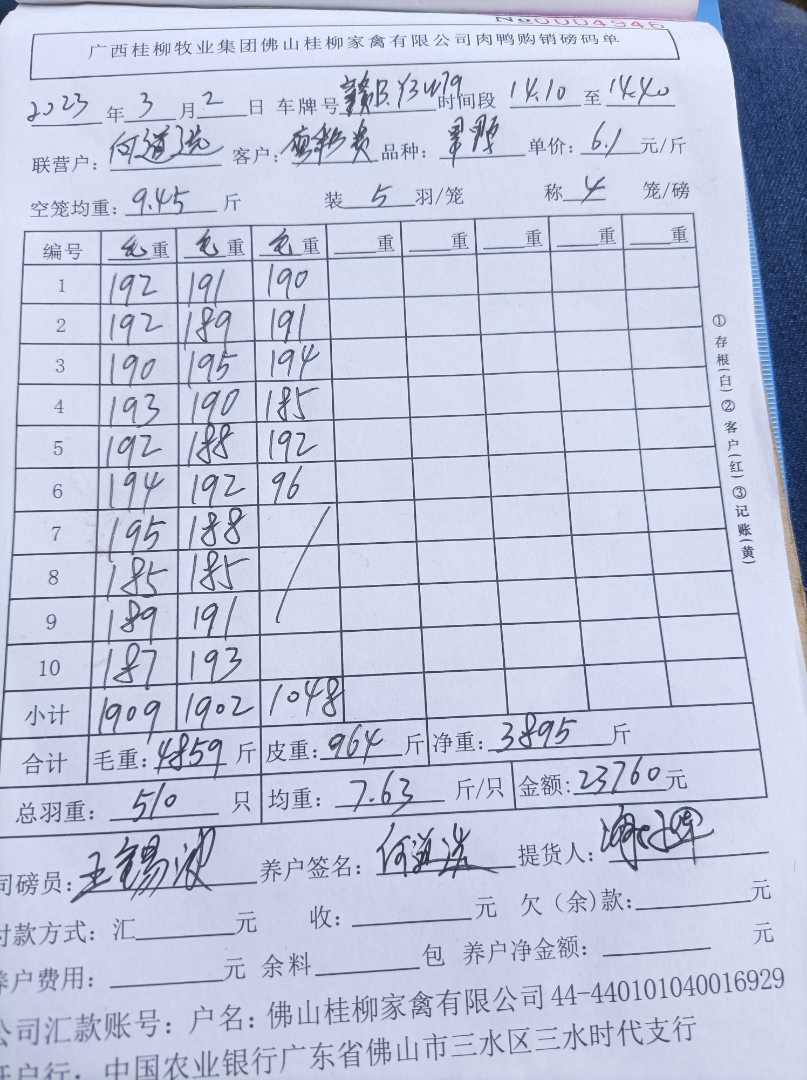 No 0004946
广西桂柳牧业集团佛山桂柳家禽有限公司肉鸭购销磅码单
2023 年 3 月 2 日 车牌号 赣B.Y3W79 时间段 14.10 至 14.40
联营户: 何道 客户: 品种: 单价: 6.1 元/斤
空笼均重: 9.45 斤 装 5 羽/笼 称 4 笼/磅
编号 毛重 毛重 毛重 重 重 重 重 重
1 192 191 190
2 192 189 191
3 190 195 194
4 193 190 185
5 192 188 192
6 194 192 96
7 195 188
8 185 185
9 189 191
10 187 193
小计 1909 1902 1048
合计 毛重: 4859 斤 皮重: 964 斤 净重: 3895 斤
总羽重: 510 只 均重: 7.63 斤/只 金额: 23760 元
司磅员: 王锡波 养户签名: 何道 提货人:
付款方式: 汇 元 收: 元 欠(余)款: 元
养户费用: 元 余料 包 养户净金额: 元
公司汇款账号: 户名: 佛山桂柳家禽有限公司 44-440101040016929
开户行: 中国农业银行广东省佛山市三水区三水时代支行
①存根(白)②客户(红)③记账(黄)